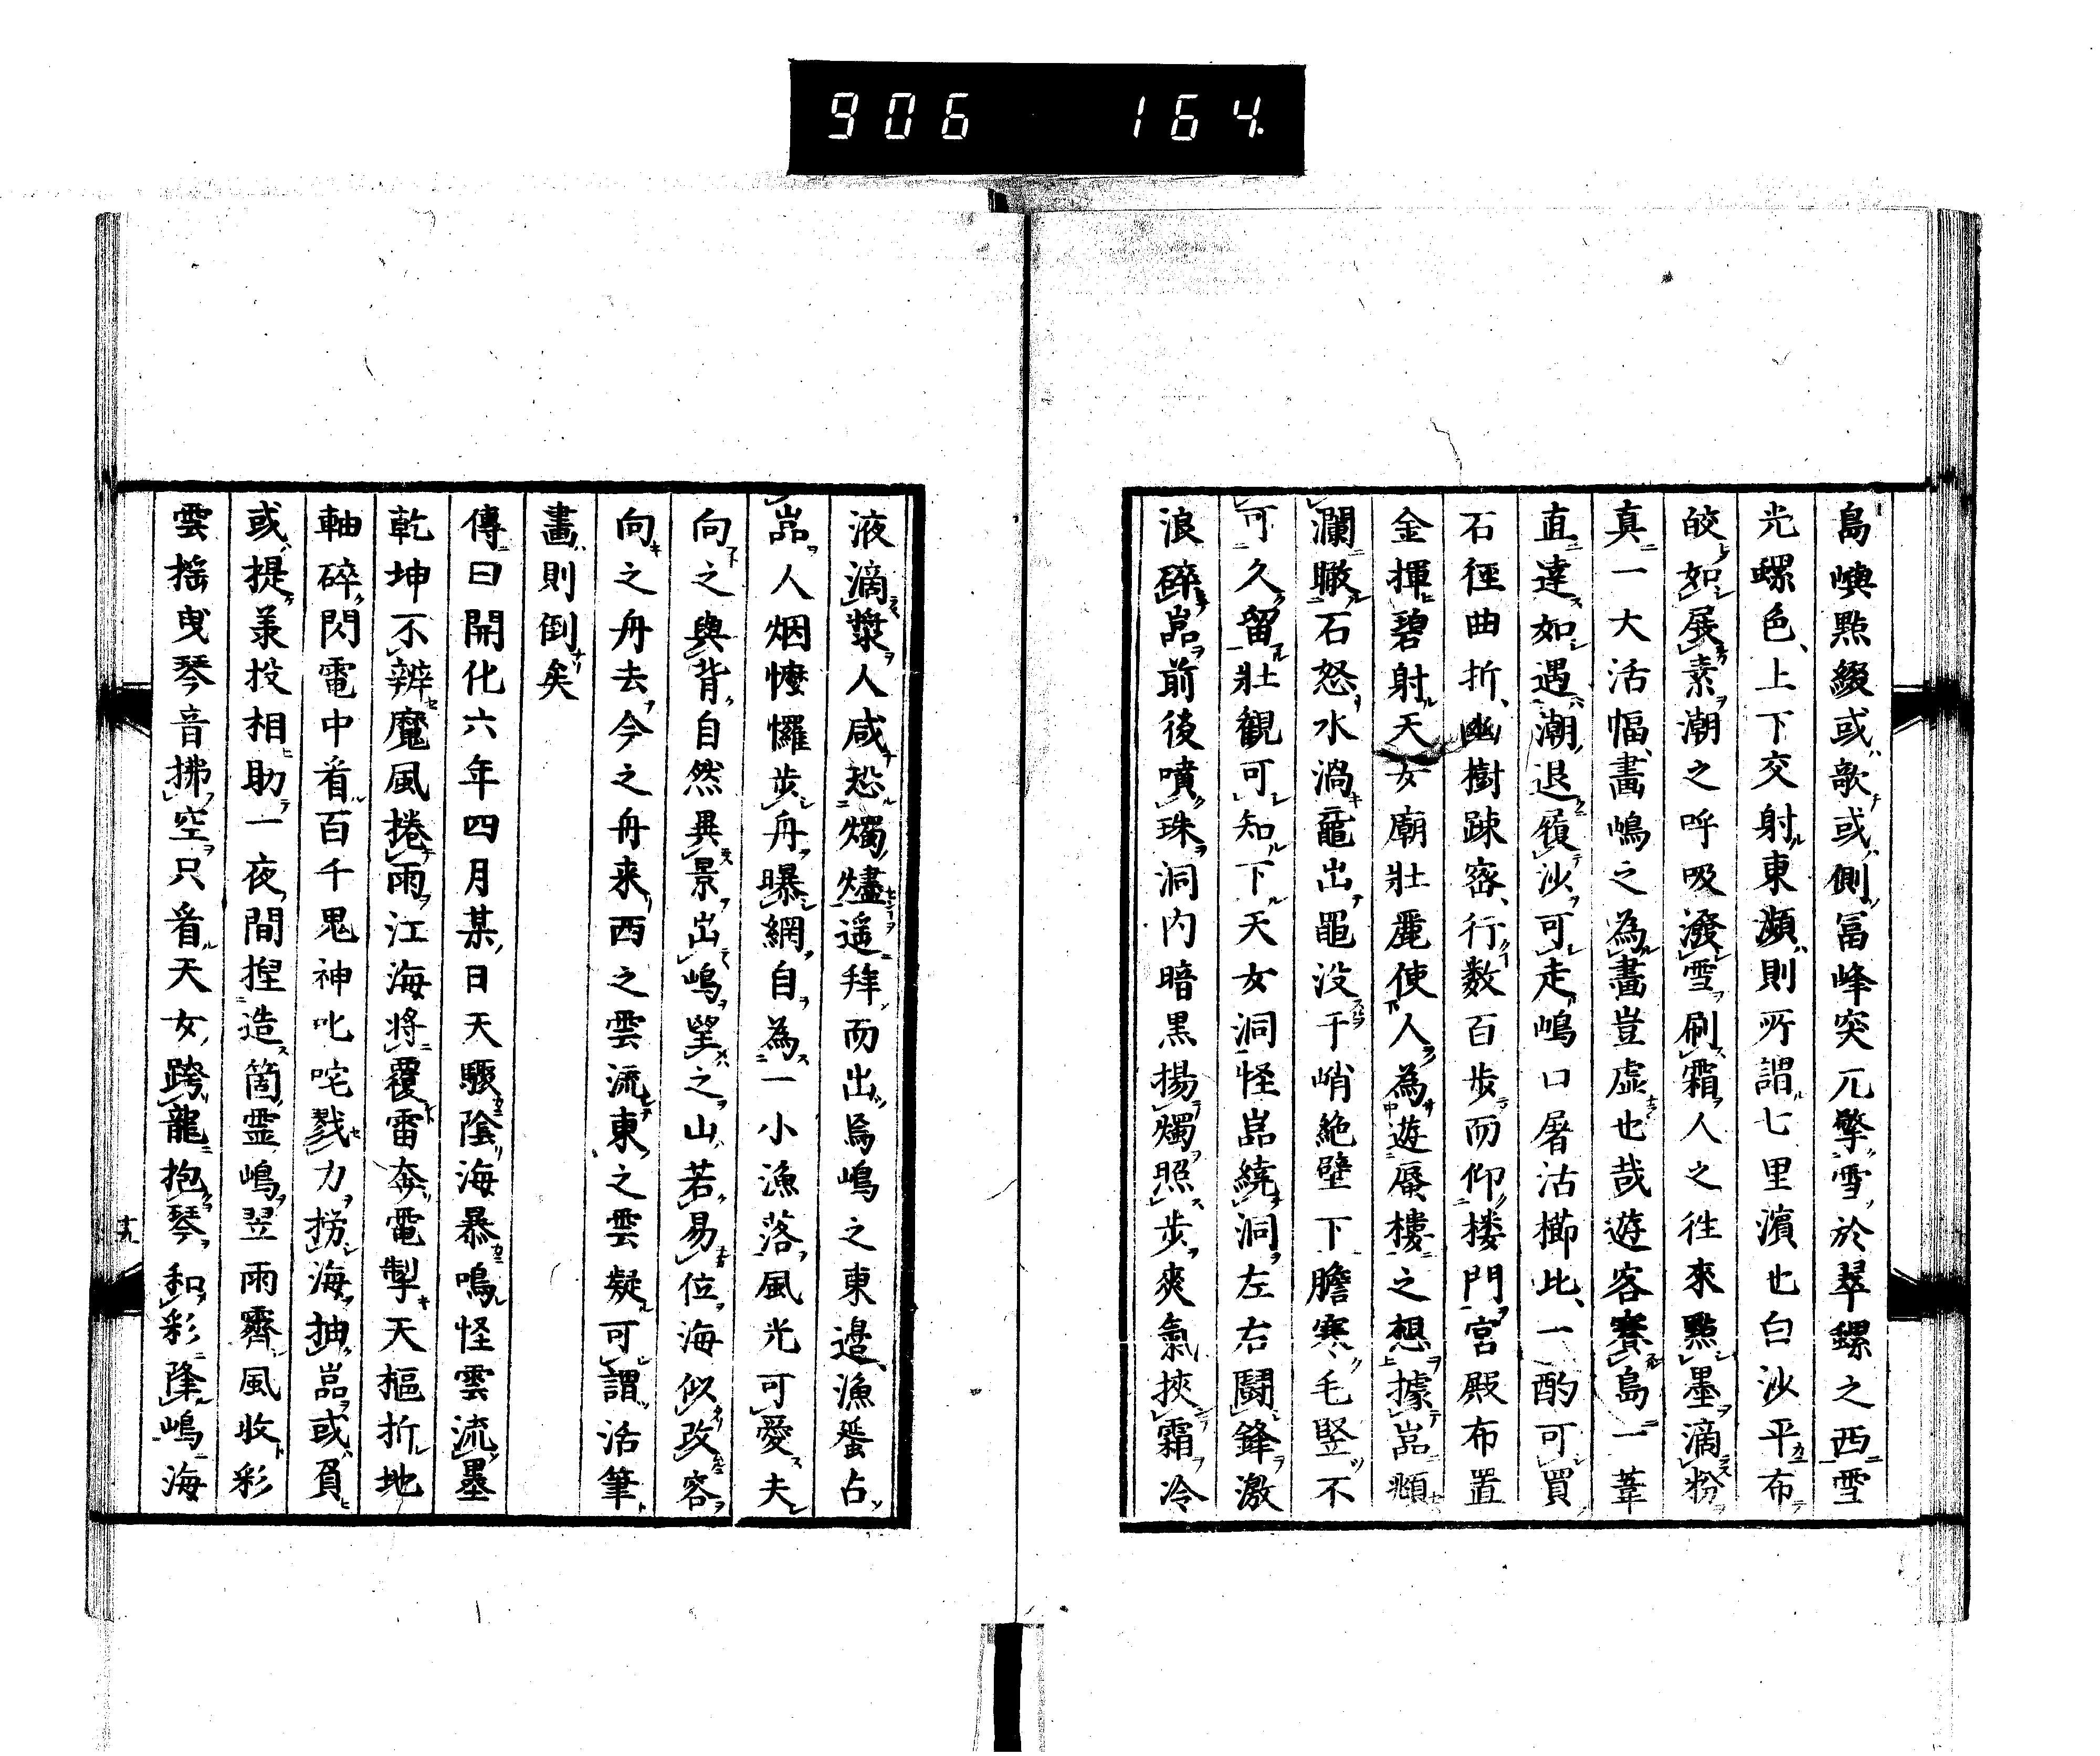 906 164.
島嶼點綴或欹或側冨峰突兀擎雪於翠螺之西雪
光螺色上下交射東瀕則所謂七里濱也白沙平布
皎如展素潮之呼吸潑雪刷霜人之徃來點墨滴粉
真一大活幅畫嶋之為畫豈虛也哉遊客賽島一葦
直達如遇潮退履沙可走嶋口屠沽櫛比一酌可買
石徑曲折幽樹踈密行数百步而仰楼門宮殿布置
金揮碧射天女廟壯麗使人為遊蜃樓之想據嵓頫
瀾瞰石怒水渦鼉出黽没千峭絶壁下膽寒毛竪不
可久留壯觀可知下天女洞怪嵓繞洞左右鬪鋒激
浪碎嵓前後噴珠洞内暗黒揚燭照步爽氣挾霜冷
液滴漿人咸恐燭燼遥拜而出烏嶋之東邉漁蜑占
嵓人烟㦬㦬步舟曝網自為一小漁落風光可愛夫
向之與背自然異景出嶋望之山若易位海似改容
向之舟去今之舟来西之雲流東之雲凝可謂活筆
畫則倒矣
傳曰開化六年四月某日天驟陰海暴鳴怪雲流墨
乾坤不辨魔風捲雨江海將覆雷奔電掣天樞折地
軸碎閃電中看百千鬼神叱咤戮力拐海抽嵓或負
或提羕投相助一夜間揑造箇霊嶋翌雨霽風收彩
雲揺曳琴音拂空只看天女跨龍抱琴和彩降嶋海
十九